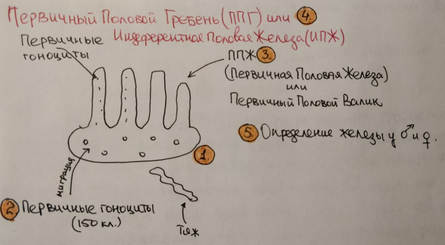 Первичный Половой Гребень (ППГ) или 4.
Индеферентная Половая Железа (ИПЖ)
Первичные
гоноциты
ППЖ 3.
(Первичная Половая Железа)
или
Первичный Половой Валик
5. Определение железы у ♂ и ♀.
1.
миграция
2. Первичные гоноциты
(150 кл.)
Тяж